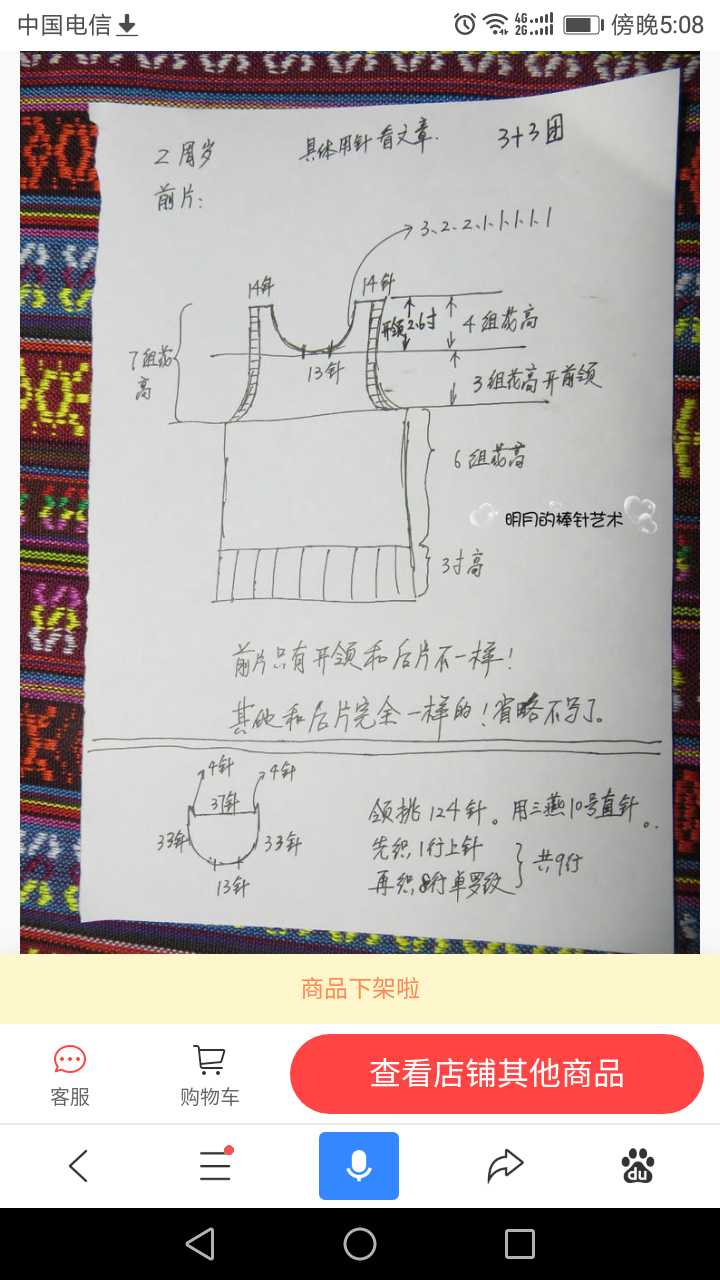 中国电信
4G
2G
傍晚5:08
2周岁
具体用针看文章.
3+3团
前片:
3、2、2、1、1、1、1、1
14针
14针
7组花高
开领2.6寸
4组花高
13针
3组花高开前领
6组花高
明月的棒针艺术
3寸高
前片只有开领和后片不一样!
其他和后片完全一样的!省略不写了。
4针
4针
37针
33针
33针
13针
领挑124针。用三燕10号直针。
先织1行上针
再织8行单罗纹
共9行
商品下架啦
客服
购物车
查看店铺其他商品
du